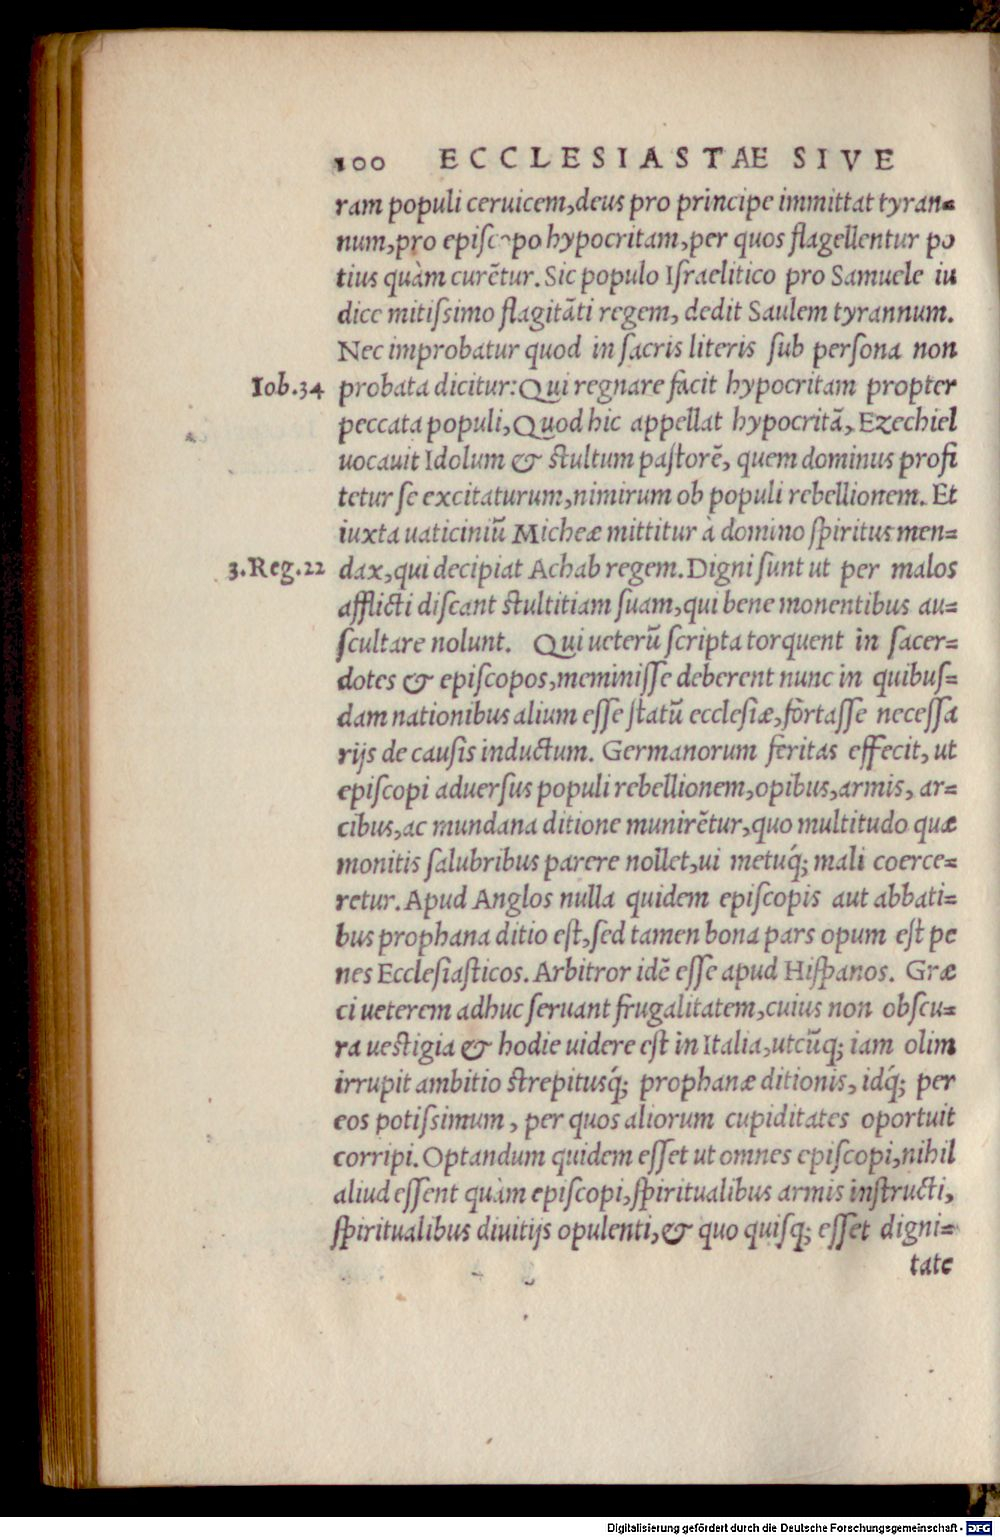 100 ECCLESIASTAE SIVE
ram populi ceruicem,deus pro principe immittat tyran=
num,pro episcopo hypocritam,per quos flagellentur po
tius quàm curẽtur. Sic populo Israelitico pro Samuele iu
dice mitissimo flagitãti regem, dedit Saulem tyrannum.
Nec improbatur quod in sacris literis sub persona non
Iob.34 probata dicitur: Qui regnare facit hypocritam propter
peccata populi, Quod hic appellat hypocritã, Ezechiel
uocauit Idolum & stultum pastorẽ, quem dominus profi
tetur se excitaturum,nimirum ob populi rebellionem. Et
iuxta uaticiniũ Micheæ mittitur à domino spiritus men=
3.Reg.22 dax,qui decipiat Achab regem. Digni sunt ut per malos
afflicti discant stultitiam suam,qui bene monentibus au=
scultare nolunt. Qui ueterũ scripta torquent in sacer=
dotes & episcopos,meminisse deberent nunc in quibus=
dam nationibus alium esse statũ ecclesiæ,fortasse necessa
rijs de causis inductum. Germanorum feritas effecit, ut
episcopi aduersus populi rebellionem,opibus,armis, ar=
cibus,ac mundana ditione munirẽtur,quo multitudo quæ
monitis salubribus parere nollet,ui metuq́; mali coerce=
retur. Apud Anglos nulla quidem episcopis aut abbati=
bus prophana ditio est,sed tamen bona pars opum est pe
nes Ecclesiasticos. Arbitror idẽ esse apud Hispanos. Græ
ci ueterem adhuc seruant frugalitatem,cuius non obscu=
ra uestigia & hodie uidere est in Italia,utcũq; iam olim
irrupit ambitio strepitusq́; prophanæ ditionis, idq́; per
eos potissimum, per quos aliorum cupiditates oportuit
corripi. Optandum quidem esset ut omnes episcopi,nihil
aliud essent quàm episcopi,spiritualibus armis instructi,
spiritualibus diuitijs opulenti,& quo quisq; esset digni=
tate
Digitalisierung gefördert durch die Deutsche Forschungsgemeinschaft - DFG